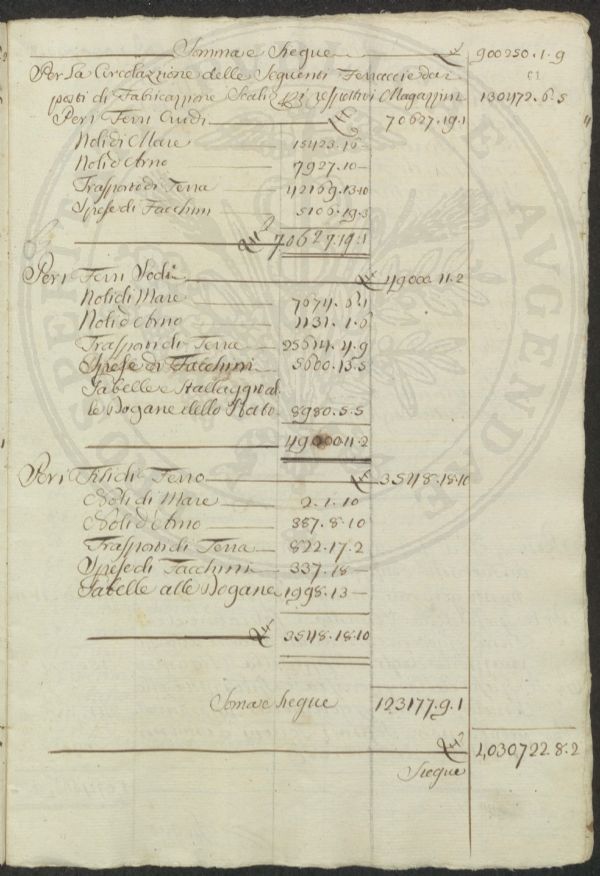 Somma e Segue 900250.1.9
Per la Circolazzione delle Seguenti Ferraccie da i
posti di Fabricazzione Scali e Ri respettivi Magazzini 130472.6.5
Per i Ferri Crudi 70627.19.1
Noli di Mare 15423.16
Noli d'Arno 7927.10
Trasporto di Terra 42169.13.10
Spese di Facchini 5106.19.3
70627.19.1
Per i Ferri Sodi 49000.11.2
Noli di Mare 7674.6.1
Noli d'Arno 1131.1.6
Trasporti di Terra 25614.4.9
Spese di Facchini 5600.13.5
Gabelle e Stallaggio al
le Dogane dello Stato 8980.5.5
49000.11.2
Per i Fili di Ferro 3548.18.10
Noli di Mare 2.1.10
Noli d'Arno 387.8.10
Trasporti di Terra 822.17.2
Spese di Facchini 337.18
Gabelle alle Dogane 1998.13
3548.18.10
Soma e Segue 123177.9.1
1,030722.8.2
Segue
HOSPITI AUGENDAE